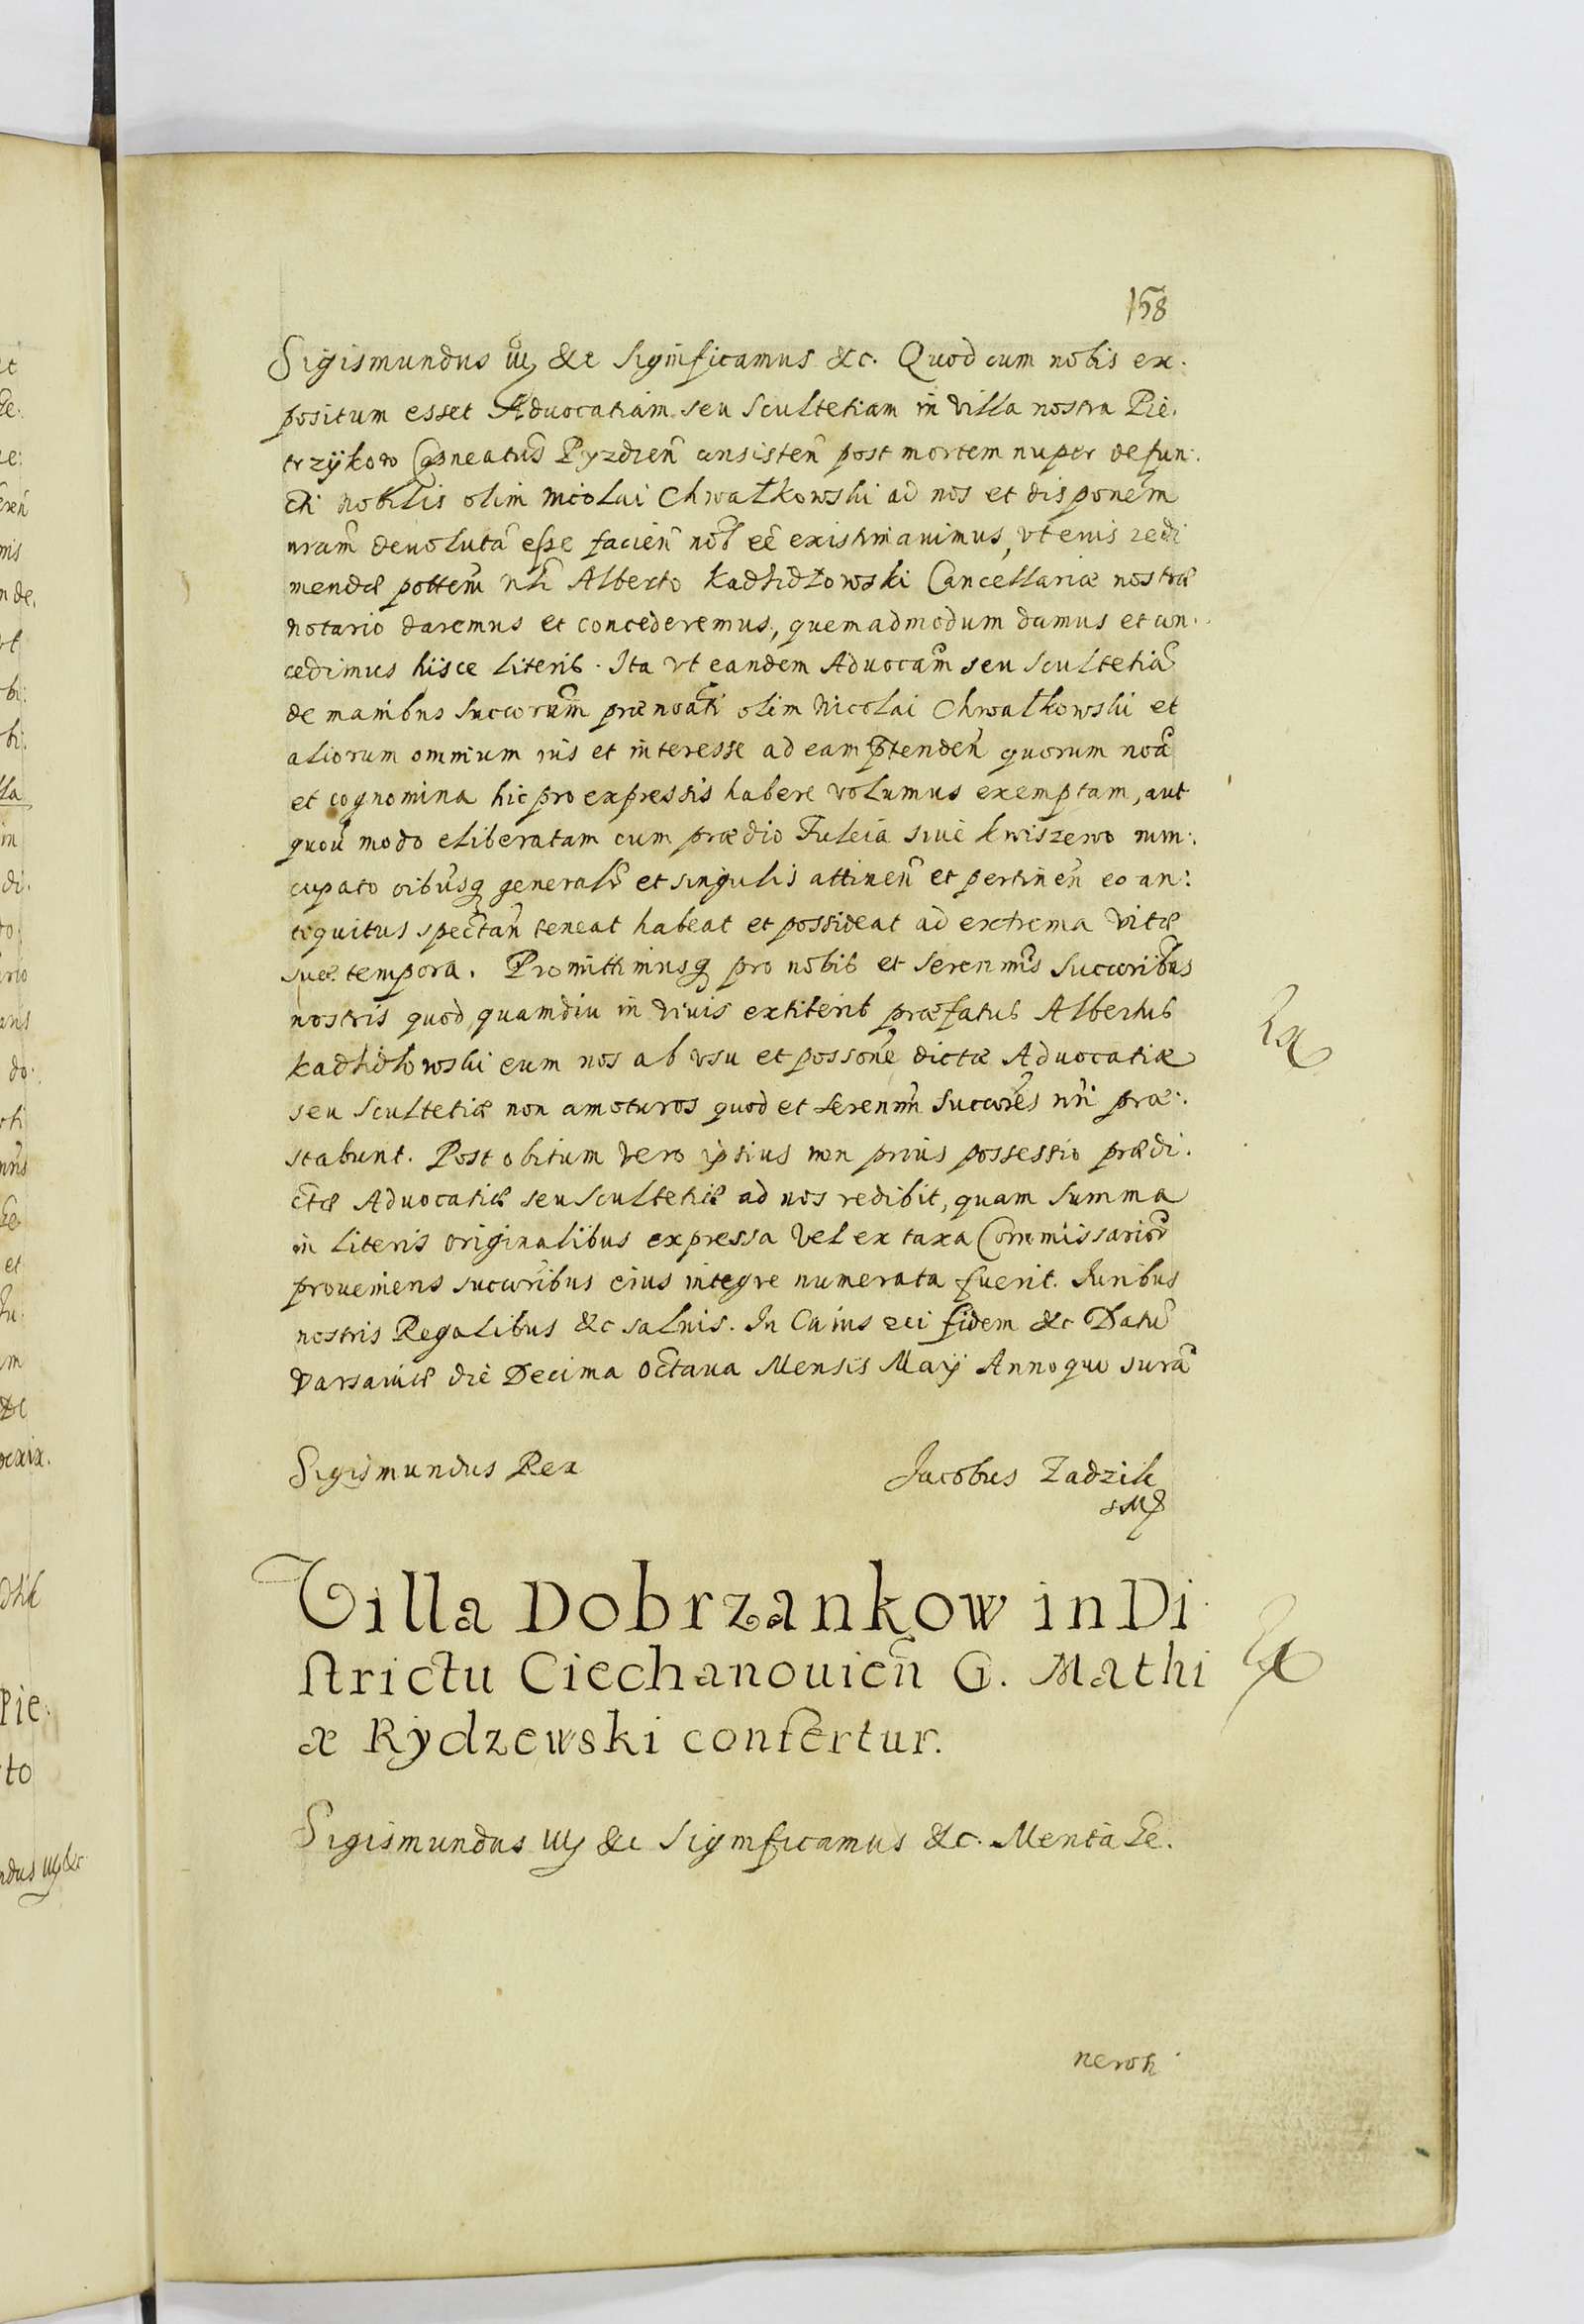 158
Sigismundus iij &c Significamus &c. Quod cum nobis ex.
positum esset Advocatiam seu Scultetiam in villa nostra Pie.
trzÿkow Capneatus Pyzdren consisten post mortem nuper defun:
cti nobilis olim Nicolai Chwatkowski ad nos et disponem
nram devolutã esse facien nob eê existimavimus, vt eius redi
mendæ pottem nli Alberto Kadzidłowski Cancellariæ nostræ
notario daremus et concederemus, quemadmodum damus et con.
cedimus hisce literis. Ita vt eandem Advocam seu Scultetiã
de manibus succorum prænoati olim Nicolai Chwatkowski et
aliorum omnium ius et interesse ad eam ptenden quorum noã
et cognomina hic pro expressis habere volumus exemptam, aut
quou modo eliberatam cum prædio Fuleia siue Kwiszewo nun:
cupato oibusq generalr et singulis attinen et pertinen eo an:
tiquitus spectan teneat habeat et possideat ad extrema vitæ
suæ tempora. Promittimusq pro nobis et Serenmis Succoribus
nostris quod quamdiu in vivis extiterit præfatus Albertus
Kadzidłowski eum nos ab vsu et possone dictæ Advocatiæ
seu Scultetiæ non amoturos quod et Serenmi Succores nri præ:
stabunt. Post obitum vero ipsius non prius possessio prædi.
ctæ Advocatiæ seu Scultetiæ ad nos redibit, quam summa
in literis originalibus expressa vel ex taxa Commissarior
proveniens succoribus eius integre numerata fuerit. Iuribus
nostris Regalibus &c salvis. In Cuius rei fidem &c Datu
Varsaviæ die Decima octava Mensis Maÿ Anno quo supra
Sigismundus Rex
Jacobus Zadzik
SMP
Villa Dobrzankow in Di
strictu Ciechanouien G. Mathi
æ Rydzewski confertur.
Sigismundus iij &c Significamus &c. Mentã Ge.
nerosi